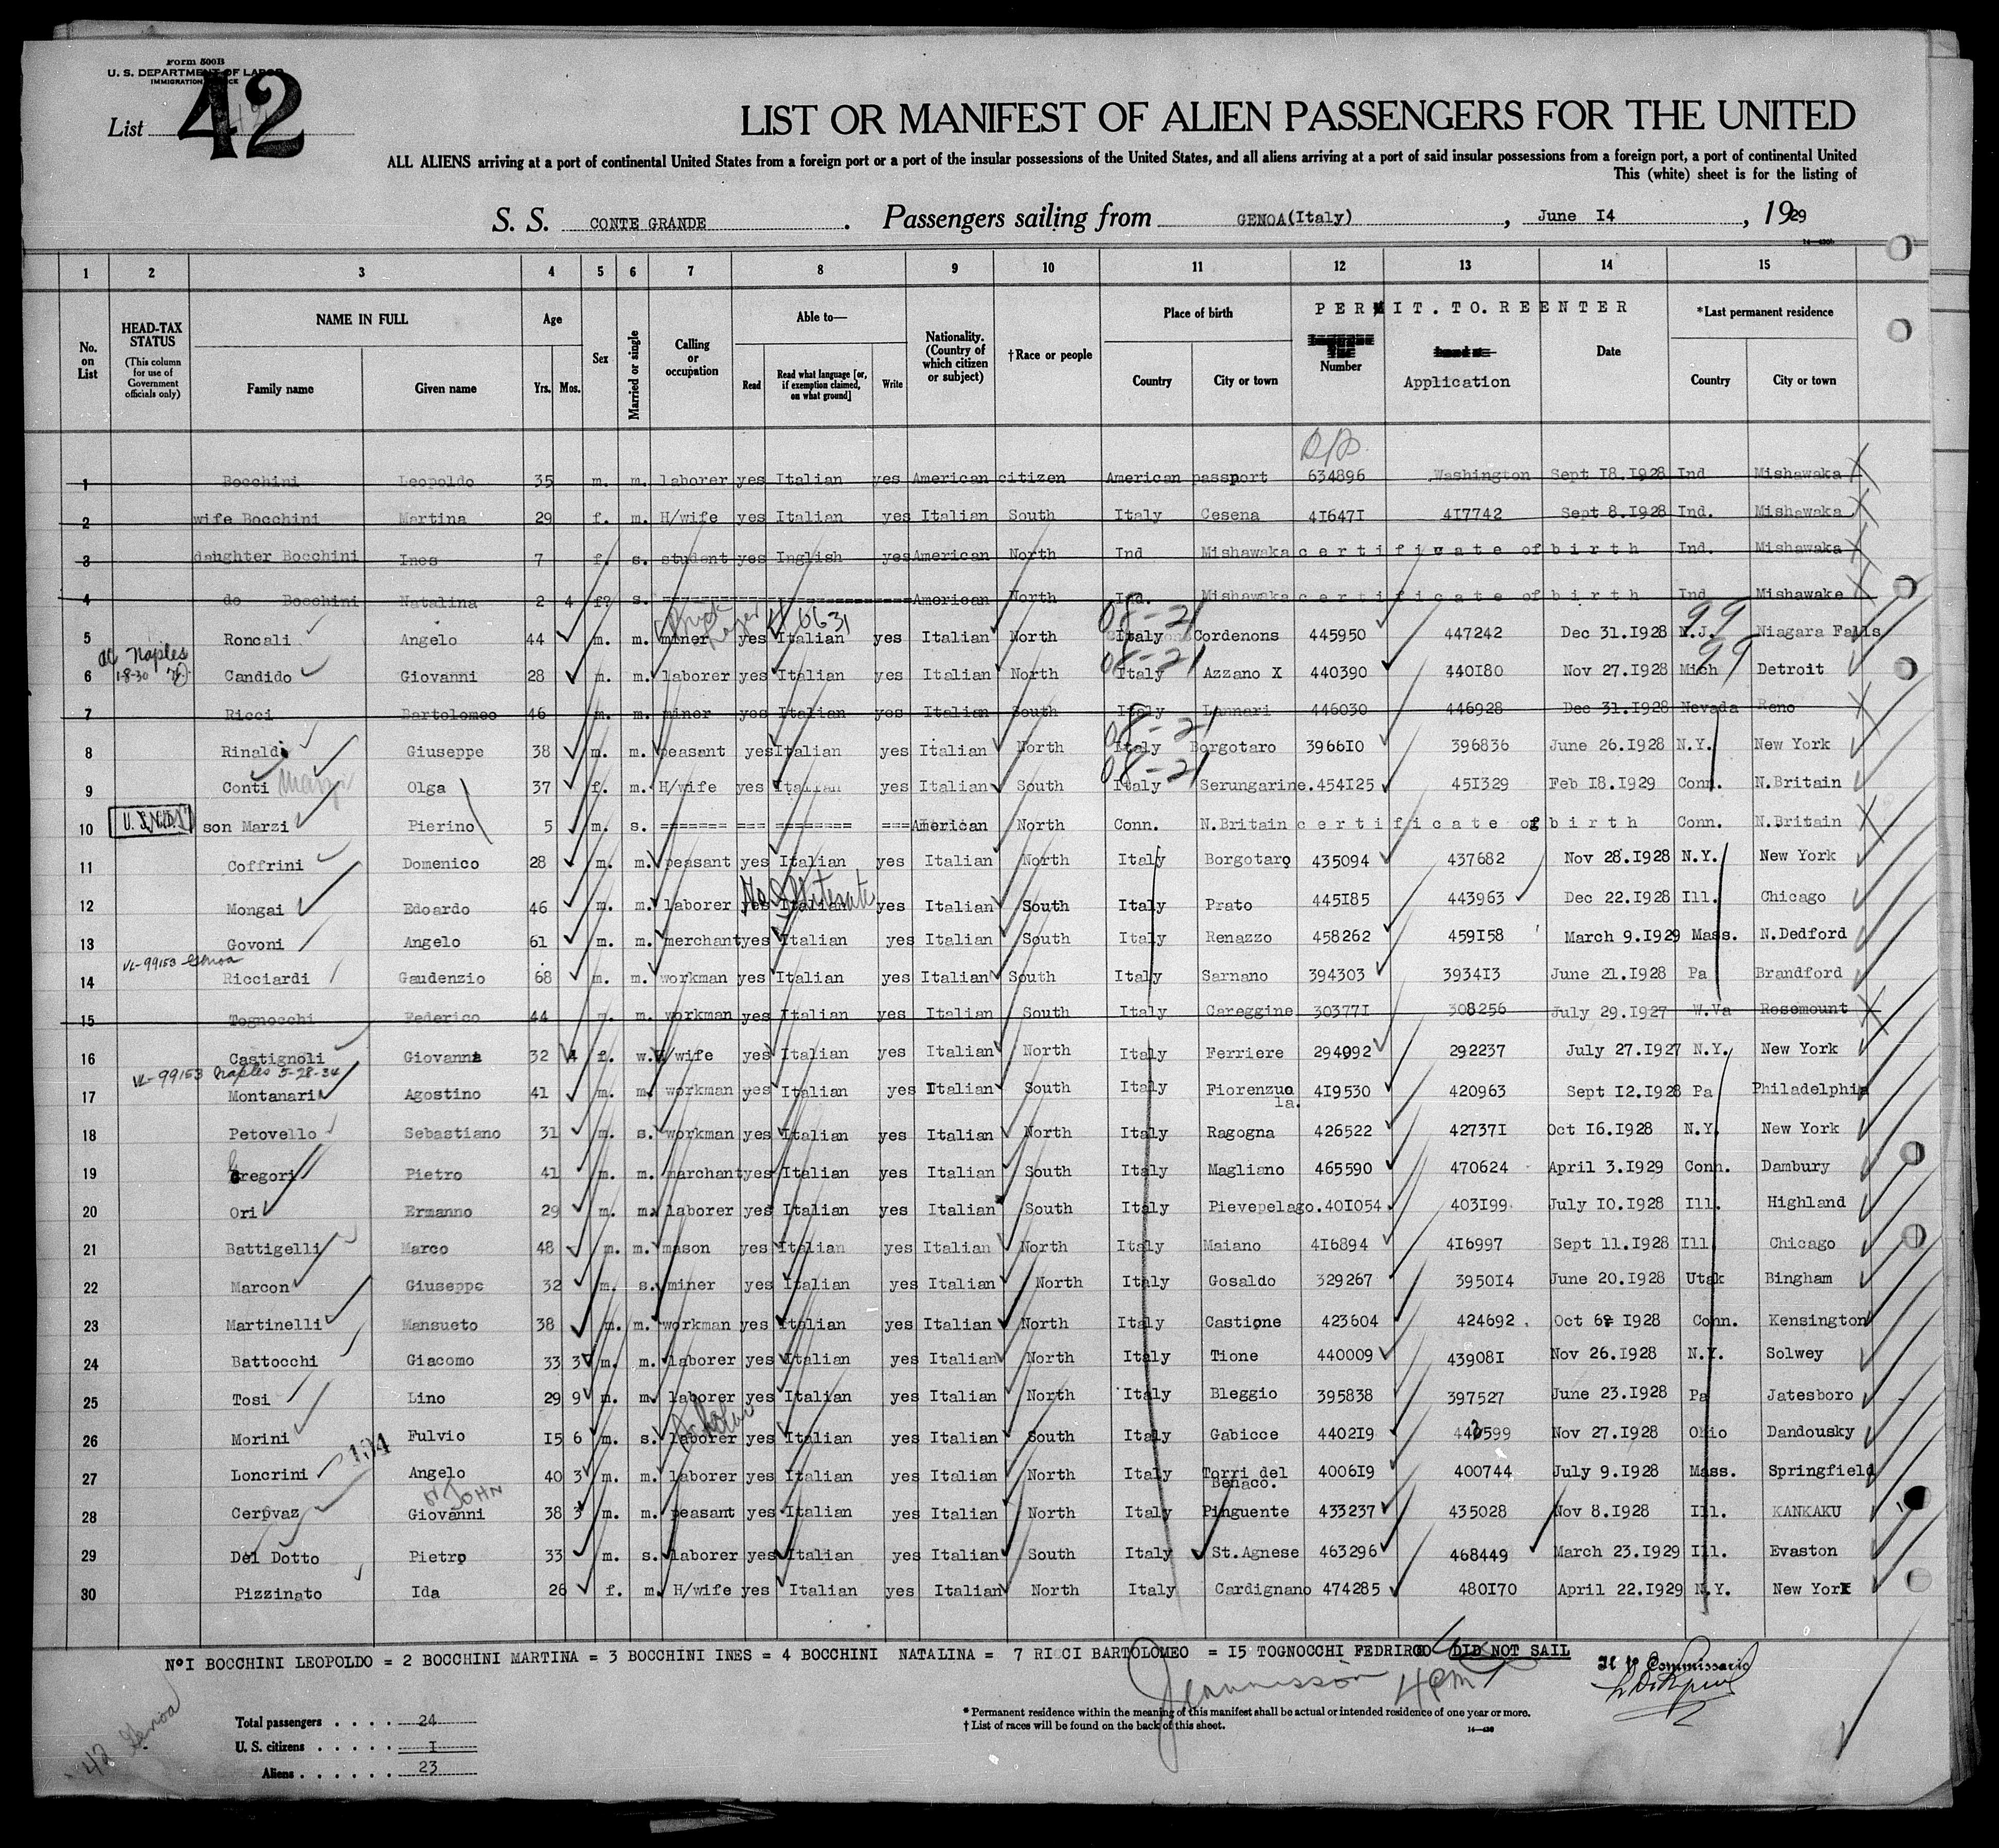 Form 500B
U. S. DEPARTMENT OF LABOR
IMMIGRATION SERVICE
List 42
LIST OR MANIFEST OF ALIEN PASSENGERS FOR THE UNITED
ALL ALIENS arriving at a port of continental United States from a foreign port or a port of the insular possessions of the United States, and all aliens arriving at a port of said insular possessions from a foreign port, a port of continental United
This (white) sheet is for the listing of
S. S. CONTE GRANDE. Passengers sailing from GENOA(Italy), June I4, 1929
1 2 3 4 5 6 7 8 9 10 11 12 13 14 15
No. on List
HEAD-TAX STATUS (This column for use of Government officials only)
NAME IN FULL Family name Given name
Age Yrs. Mos.
Sex
Married or single
Calling or occupation
Able to— Read Read what language [or, if exemption claimed, on what ground] Write
Nationality. (Country of which citizen or subject)
†Race or people
Place of birth Country City or town
PERMIT.TO.REENTER
Number Application Date
*Last permanent residence Country City or town
1 Bocchini Leopoldo 35 m. m. laborer yes Italian yes American citizen American passport 634896 Washington Sept I8.I928 Ind Mishawaka
2 wife Bocchini Martina 29 f. m. H/wife yes Italian yes Italian South Italy Cesena 4I647I 4I7742 Sept 8.I928 Ind. Mishawaka
3 daughter Bocchini Ines 7 f. s. student yes Inglish yes American North Ind Mishawaka certificate of birth Ind. Mishawaka
4 do Bocchini Natalina 2 4 f? s. American North Ind. Mishawaka certificate of birth Ind Mishawake
5 Roncali Angelo 44 m. m. miner yes Italian yes Italian North Italy Cordenons 445950 447242 Dec 3I.I928 N.J. Niagara Falls
08-21 99
at Naples
1-8-30
6 Candido Giovanni 28 m. m. laborer yes Italian yes Italian North Italy Azzano X 440390 440I80 Nov 27.I928 Mich Detroit
08-21 99
7 Ricci Bartolomeo 46 m. m. minor yes Italian yes Italian South Italy Lunnari 446030 446928 Dec 3I.I928 Nevada Reno
8 Rinaldi Giuseppe 38 m. m. peasant yes Italian yes Italian North Italy Borgotaro 3966I0 396836 June 26.I928 N.Y. New York
08-21
9 Conti Marzi Olga 37 f. m. H/wife yes Italian yes Italian South Italy Serungarine. 454I25 45I329 Feb I8.I929 Conn. N.Britain
08-21
10 son Marzi Pierino 5 m. s. ======= === ======== === American North Conn. N.Britain certificate of birth Conn. N.Britain
11 Coffrini Domenico 28 m. m. peasant yes Italian yes Italian North Italy Borgotaro 435094 437682 Nov 28.I928 N.Y. New York
No Illiterate
12 Mongai Edoardo 46 m. m. laborer yes Italian yes Italian South Italy Prato 445I85 443963 Dec 22.I928 Ill. Chicago
13 Govoni Angelo 61 m. m. merchant yes Italian yes Italian South Italy Renazzo 458262 459I58 March 9.I929 Mass. N.Dedford
VL-99153 Genoa
14 Ricciardi Gaudenzio 68 m. m. workman yes Italian yes Italian South Italy Sarnano 394303 3934I3 June 2I.I928 Pa Brandford
15 Tognocchi Federico 44 m. m. workman yes Italian yes Italian South Italy Careggine 30377I 308256 July 29.I927 W.Va Rosemount
16 Castignoli Giovanna 32 4 f. w. H/wife yes Italian yes Italian North Italy Ferriere 294092 292237 July 27.I927 N.Y. New York
VL-99153 Naples 5-28-34
17 Montanari Agostino 41 m. m. workman yes Italian yes Italian South Italy Fiorenzuola. 4I9530 420963 Sept I2.I928 Pa Philadelphia
18 Petovello Sebastiano 31 m. s. workman yes Italian yes Italian North Italy Ragogna 426522 42737I Oct I6.I928 N.Y. New York
19 Gregori Pietro 41 m. m. marchant yes Italian yes Italian South Italy Magliano 465590 470624 April 3.I929 Conn. Dambury
20 Ori Ermanno 29 m. m. laborer yes Italian yes Italian South Italy Pievepelago. 40I054 403I99 July I0.I928 Ill. Highland
21 Battigelli Marco 48 m. m. mason yes Italian yes Italian North Italy Maiano 4I6894 4I6997 Sept II.I928 Ill Chicago
22 Marcon Giuseppe 32 m. s. miner yes Italian yes Italian North Italy Gosaldo 329267 3950I4 June 20.I928 Utak Bingham
23 Martinelli Mansueto 38 m. m. workman yes Italian yes Italian North Italy Castione 423604 424692. Oct 6 I928 Conn. Kensington
24 Battocchi Giacomo 33 3 m. m. laborer yes Italian yes Italian North Italy Tione 440009 43908I Nov 26.I928 N.Y. Solwey
25 Tosi Lino 29 9 m. m. laborer yes Italian yes Italian North Italy Bleggio 395838 397527 June 23.I928 Pa Jatesboro
26 Morini Fulvio I5 6 m. s. laborer yes Italian yes Italian South Italy Gabicce 4402I9 442599 Nov 27.I928 Ohio Dandousky
27 Loncrini Angelo 40 3 m. m. laborer yes Italian yes Italian North Italy Torri del Benaco. 4006I9 400744 July 9.I928 Mass. Springfield
or JOHN
28 Cerovaz Giovanni 38 3 m. m. peasant yes Italian yes Italian North Italy Pinguente 433237 435028 Nov 8.I928 Ill. KANKAKU
29 Del Dotto Pietro 33 m. s. laborer yes Italian yes Italian South Italy St.Agnese 463296 468449 March 23.I929 Ill. Evaston
30 Pizzinato Ida 26 f. m. H/wife yes Italian yes Italian North Italy Cardignano 474285 480I70 April 22.I929 N.Y. New York
N°I BOCCHINI LEOPOLDO = 2 BOCCHINI MARTINA = 3 BOCCHINI INES = 4 BOCCHINI NATALINA = 7 RICCI BARTOLOMEO = I5 TOGNOCCHI FEDRIGO DID NOT SAIL
Il 1° Commissario
4 PM
* Permanent residence within the meaning of this manifest shall be actual or intended residence of one year or more.
† List of races will be found on the back of this sheet.
Total passengers . . . . 24
U. S. citizens . . . . . I
Aliens . . . . . . 23
42 Genoa